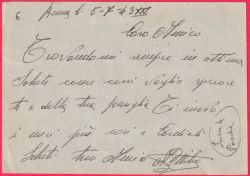 6
li 5-7-43 XXI
Caro Amico
Trovandomi sempre in ottima
Salute come così voglio sperare
te e della tua famiglia Ti invio
i miei più cari e Cordiali
Saluti tuo Amico